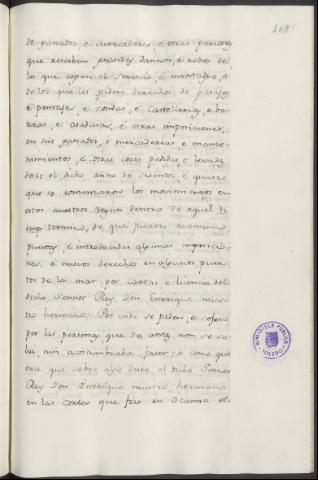 208
de ganados, é mercadores, é otras personas
que reciben grandes dannos, é robos de
los que cogen el servicio, é montadgo, é
de los que les piden derechos de pasages
é pontages, é rondas, é Castellerias, é bo-
rras, é asaduras, é otras imposiciones,
en sus ganados, é mercaderias, é mante-
nimientos é otras cosas pedidas, é levadas
desde el dicho anno de sesenta é quatro
que se comenzaron los movimientos en
estos nuestros Regnos dentro de aquel ti-
empo, é termino, de que fueron
puestas, é introducidas algunas imposicio-
nes, é nuevos derechos en algunos puer-
tos de la mar, por cartas, é licencia del
dicho Sennor Rey Don Enrrique nues-
tro hermano: Por ende se piden, é cojen
por las personas, que de antes non se so-
lia, nin acostumbraba facer; é como quie-
ra que sobre esto el dicho Sennor
Rey Don Enrrique nuestro hermano
en las Cortes que fizo en Ocanna el
BIBLIOTECA PUBLICA
TOLEDO